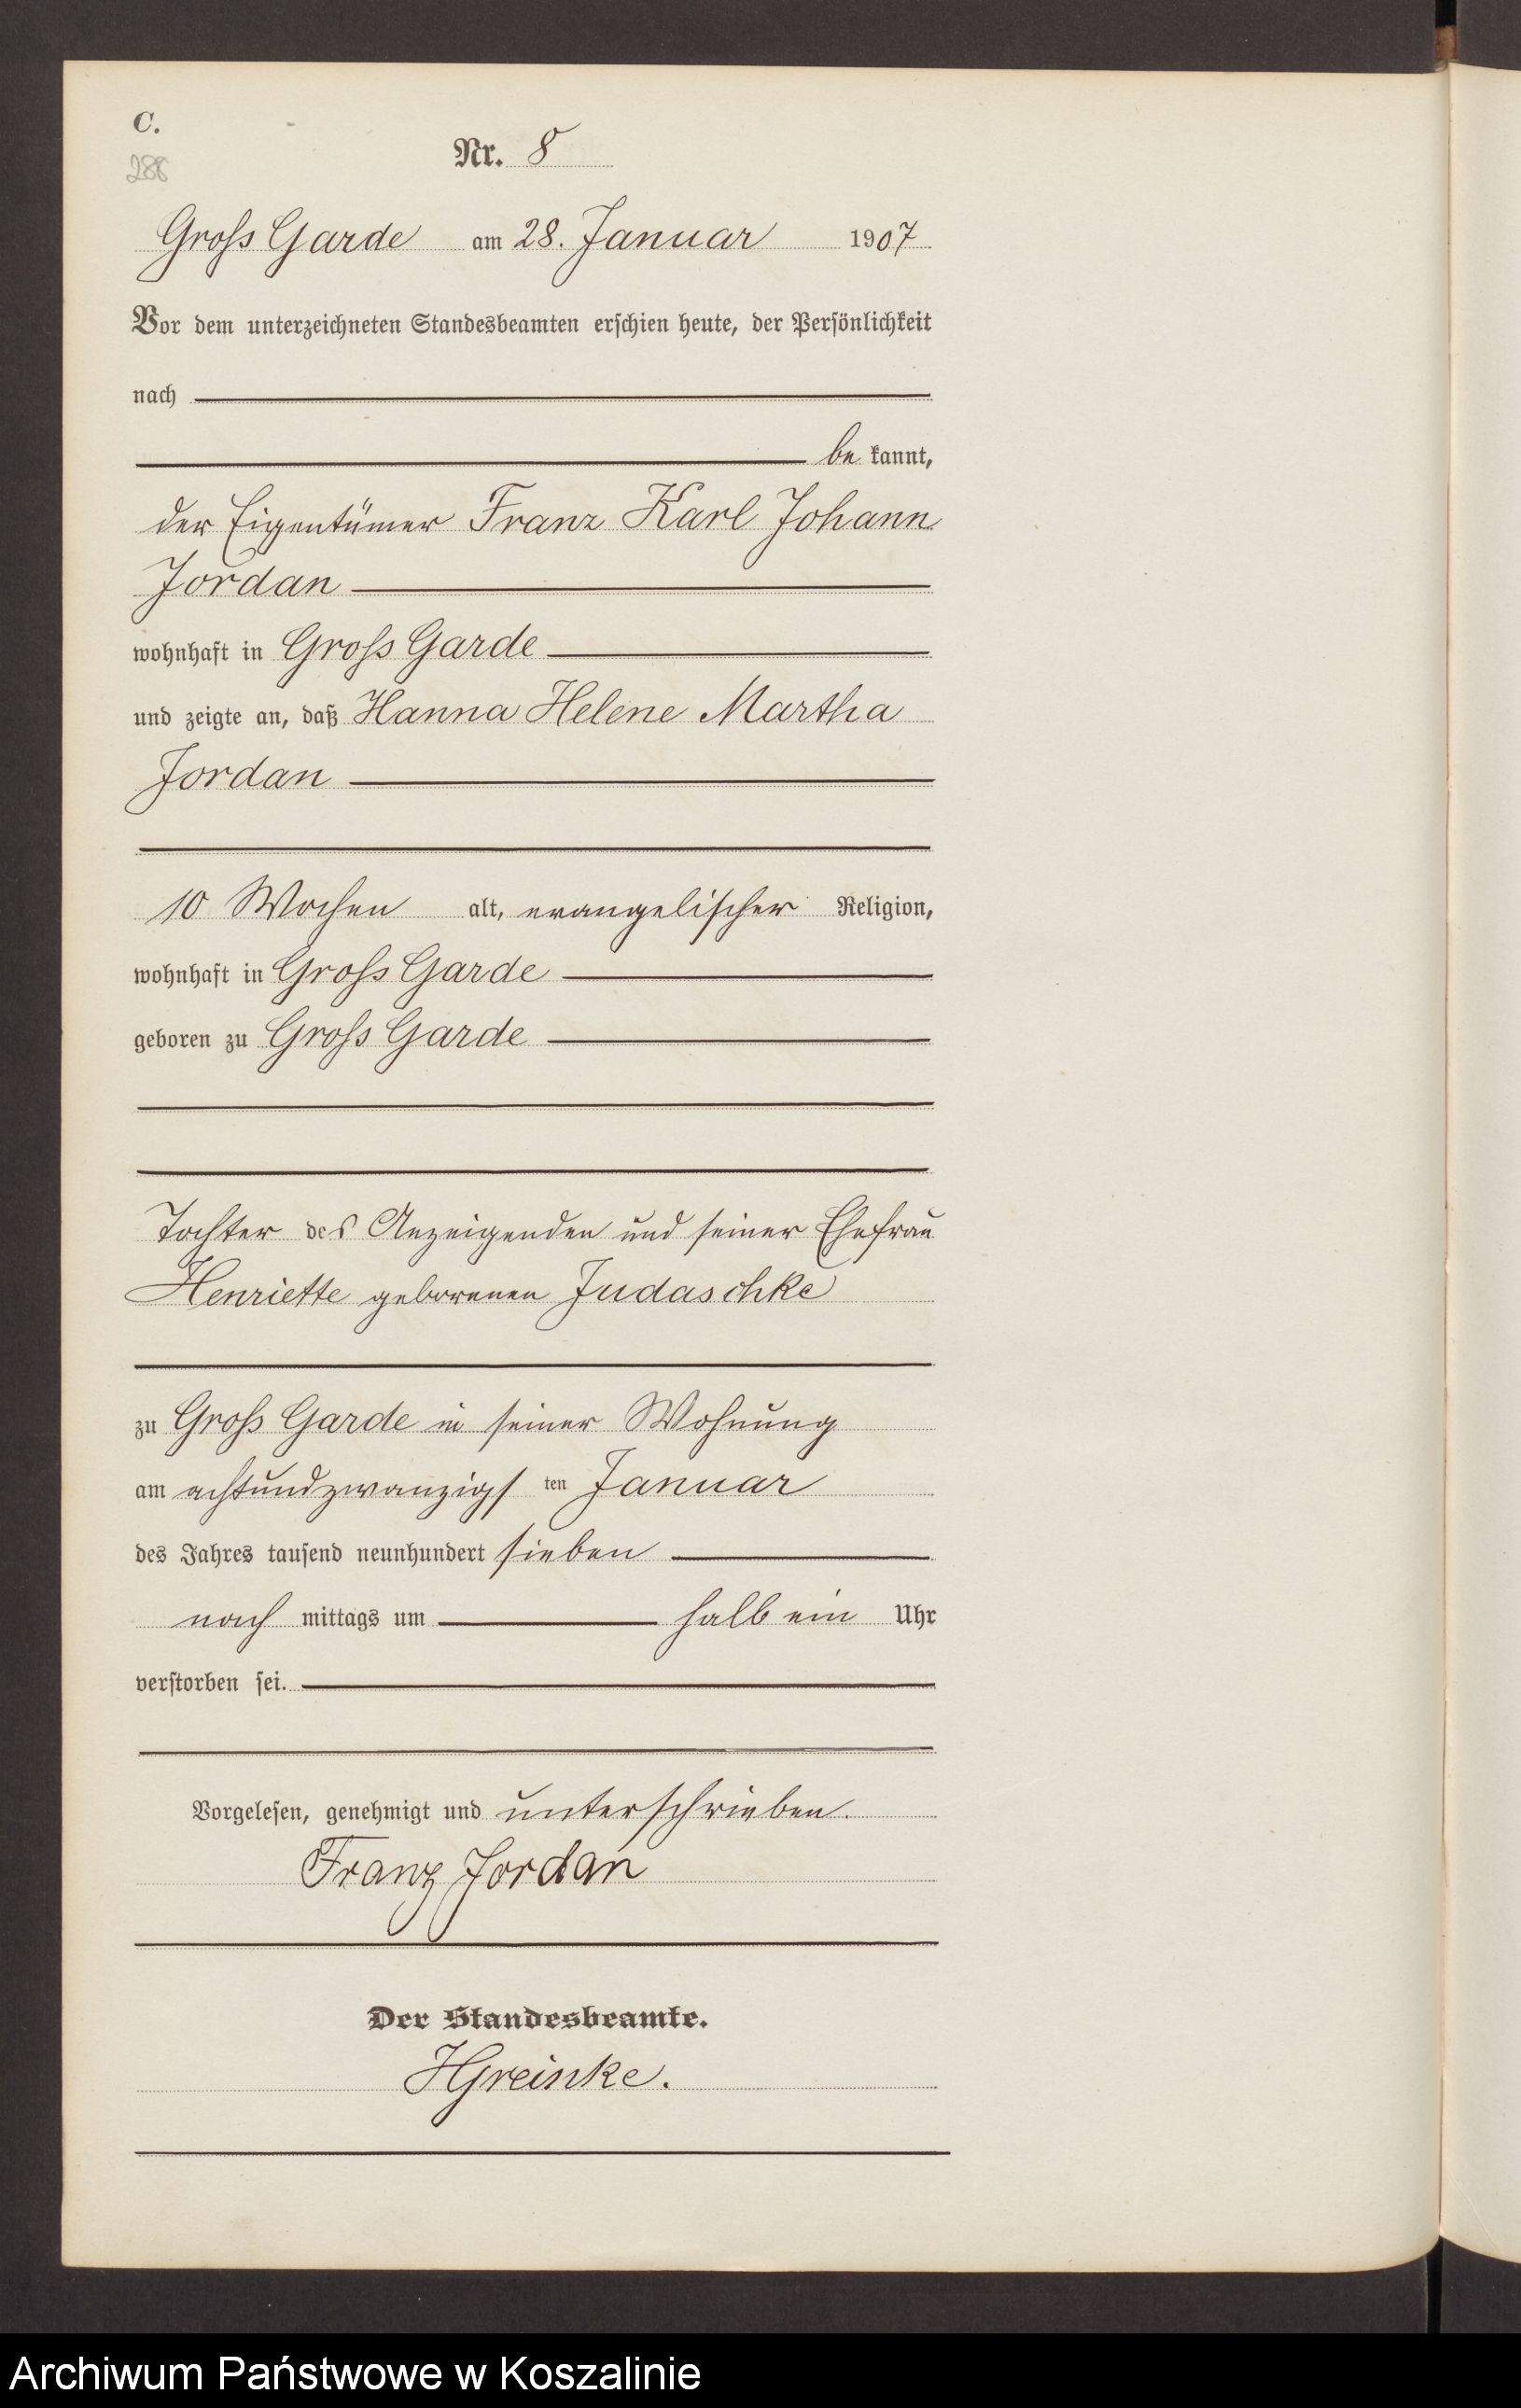 C.
288
Nr. 8
Gross Garde am 28. Januar 1907
Vor dem unterzeichneten Standesbeamten erschien heute, der Persönlichkeit
nach
be kannt,
der Eigentümer Franz Karl Johann
Jordan
wohnhaft in Gross Garde
und zeigte an, daß Hanna Helene Martha
Jordan
10 Wochen alt, evangelischer Religion,
wohnhaft in Gross Garde
geboren zu Gross Garde
Tochter des Anzeigenden und seiner Ehefrau
Henriette geborenen Judaschke
zu Gross Garde in seiner Wohnung
am achtundzwanzigs ten Januar
des Jahres tausend neunhundert sieben
nach mittags um halb ein Uhr
verstorben sei.
Vorgelesen, genehmigt und unterschrieben.
Franz Jordan
Der Standesbeamte.
HGreinke.
Archiwum Państwowe w Koszalinie